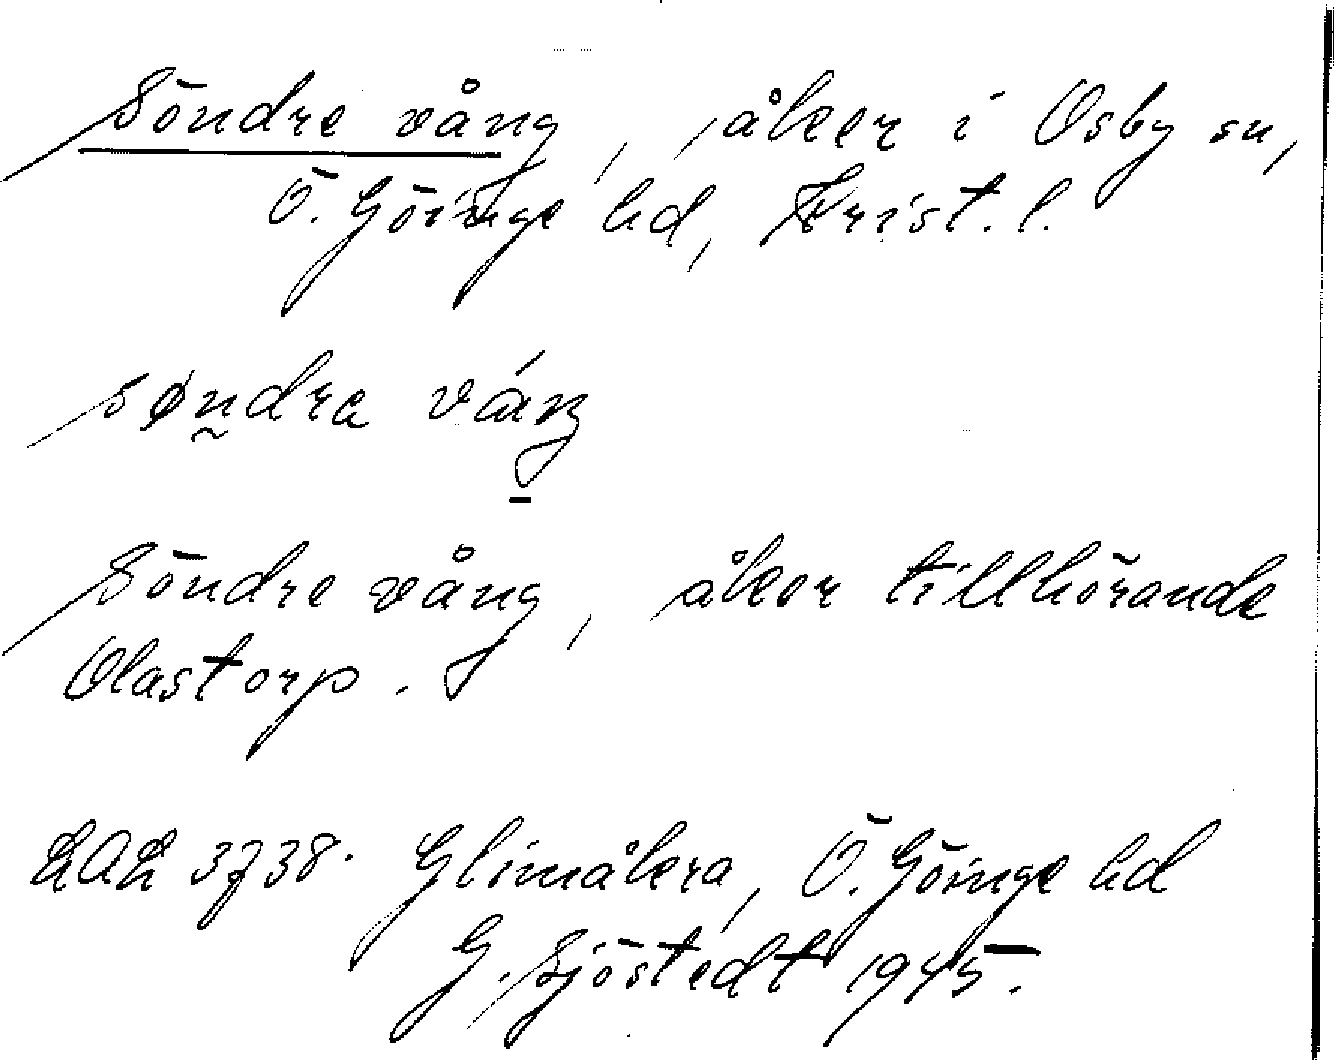 Söndre vång, åker i Osby sn,
Ö. Göinge hd, Krist. l.
søn̰dra váŋ
Söndre vång, åker tillhörande
Olastorp.
LAL 3738. Glimåkra, Ö. Göinge hd
G. Sjöstedt 1945.